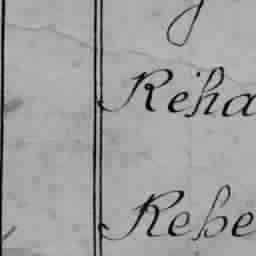 Reha
Rebe